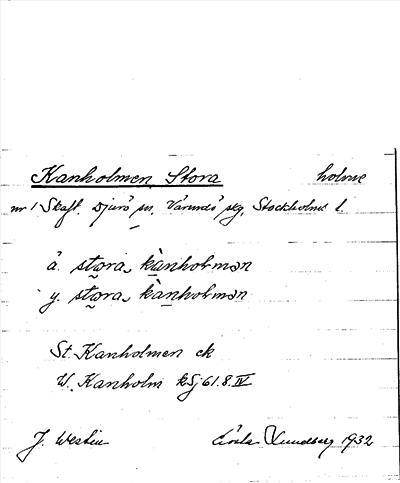 Kanholmen, Stora holme
nr 1 Skaft. Djurö sn, Värmdö skg, Stockholms l.
ä. stora kànholmən
y. stora kànholmən
St. Kanholmen ek
V. Kanholm kSj 61.8.IV
J. Westin Lundberg 1932